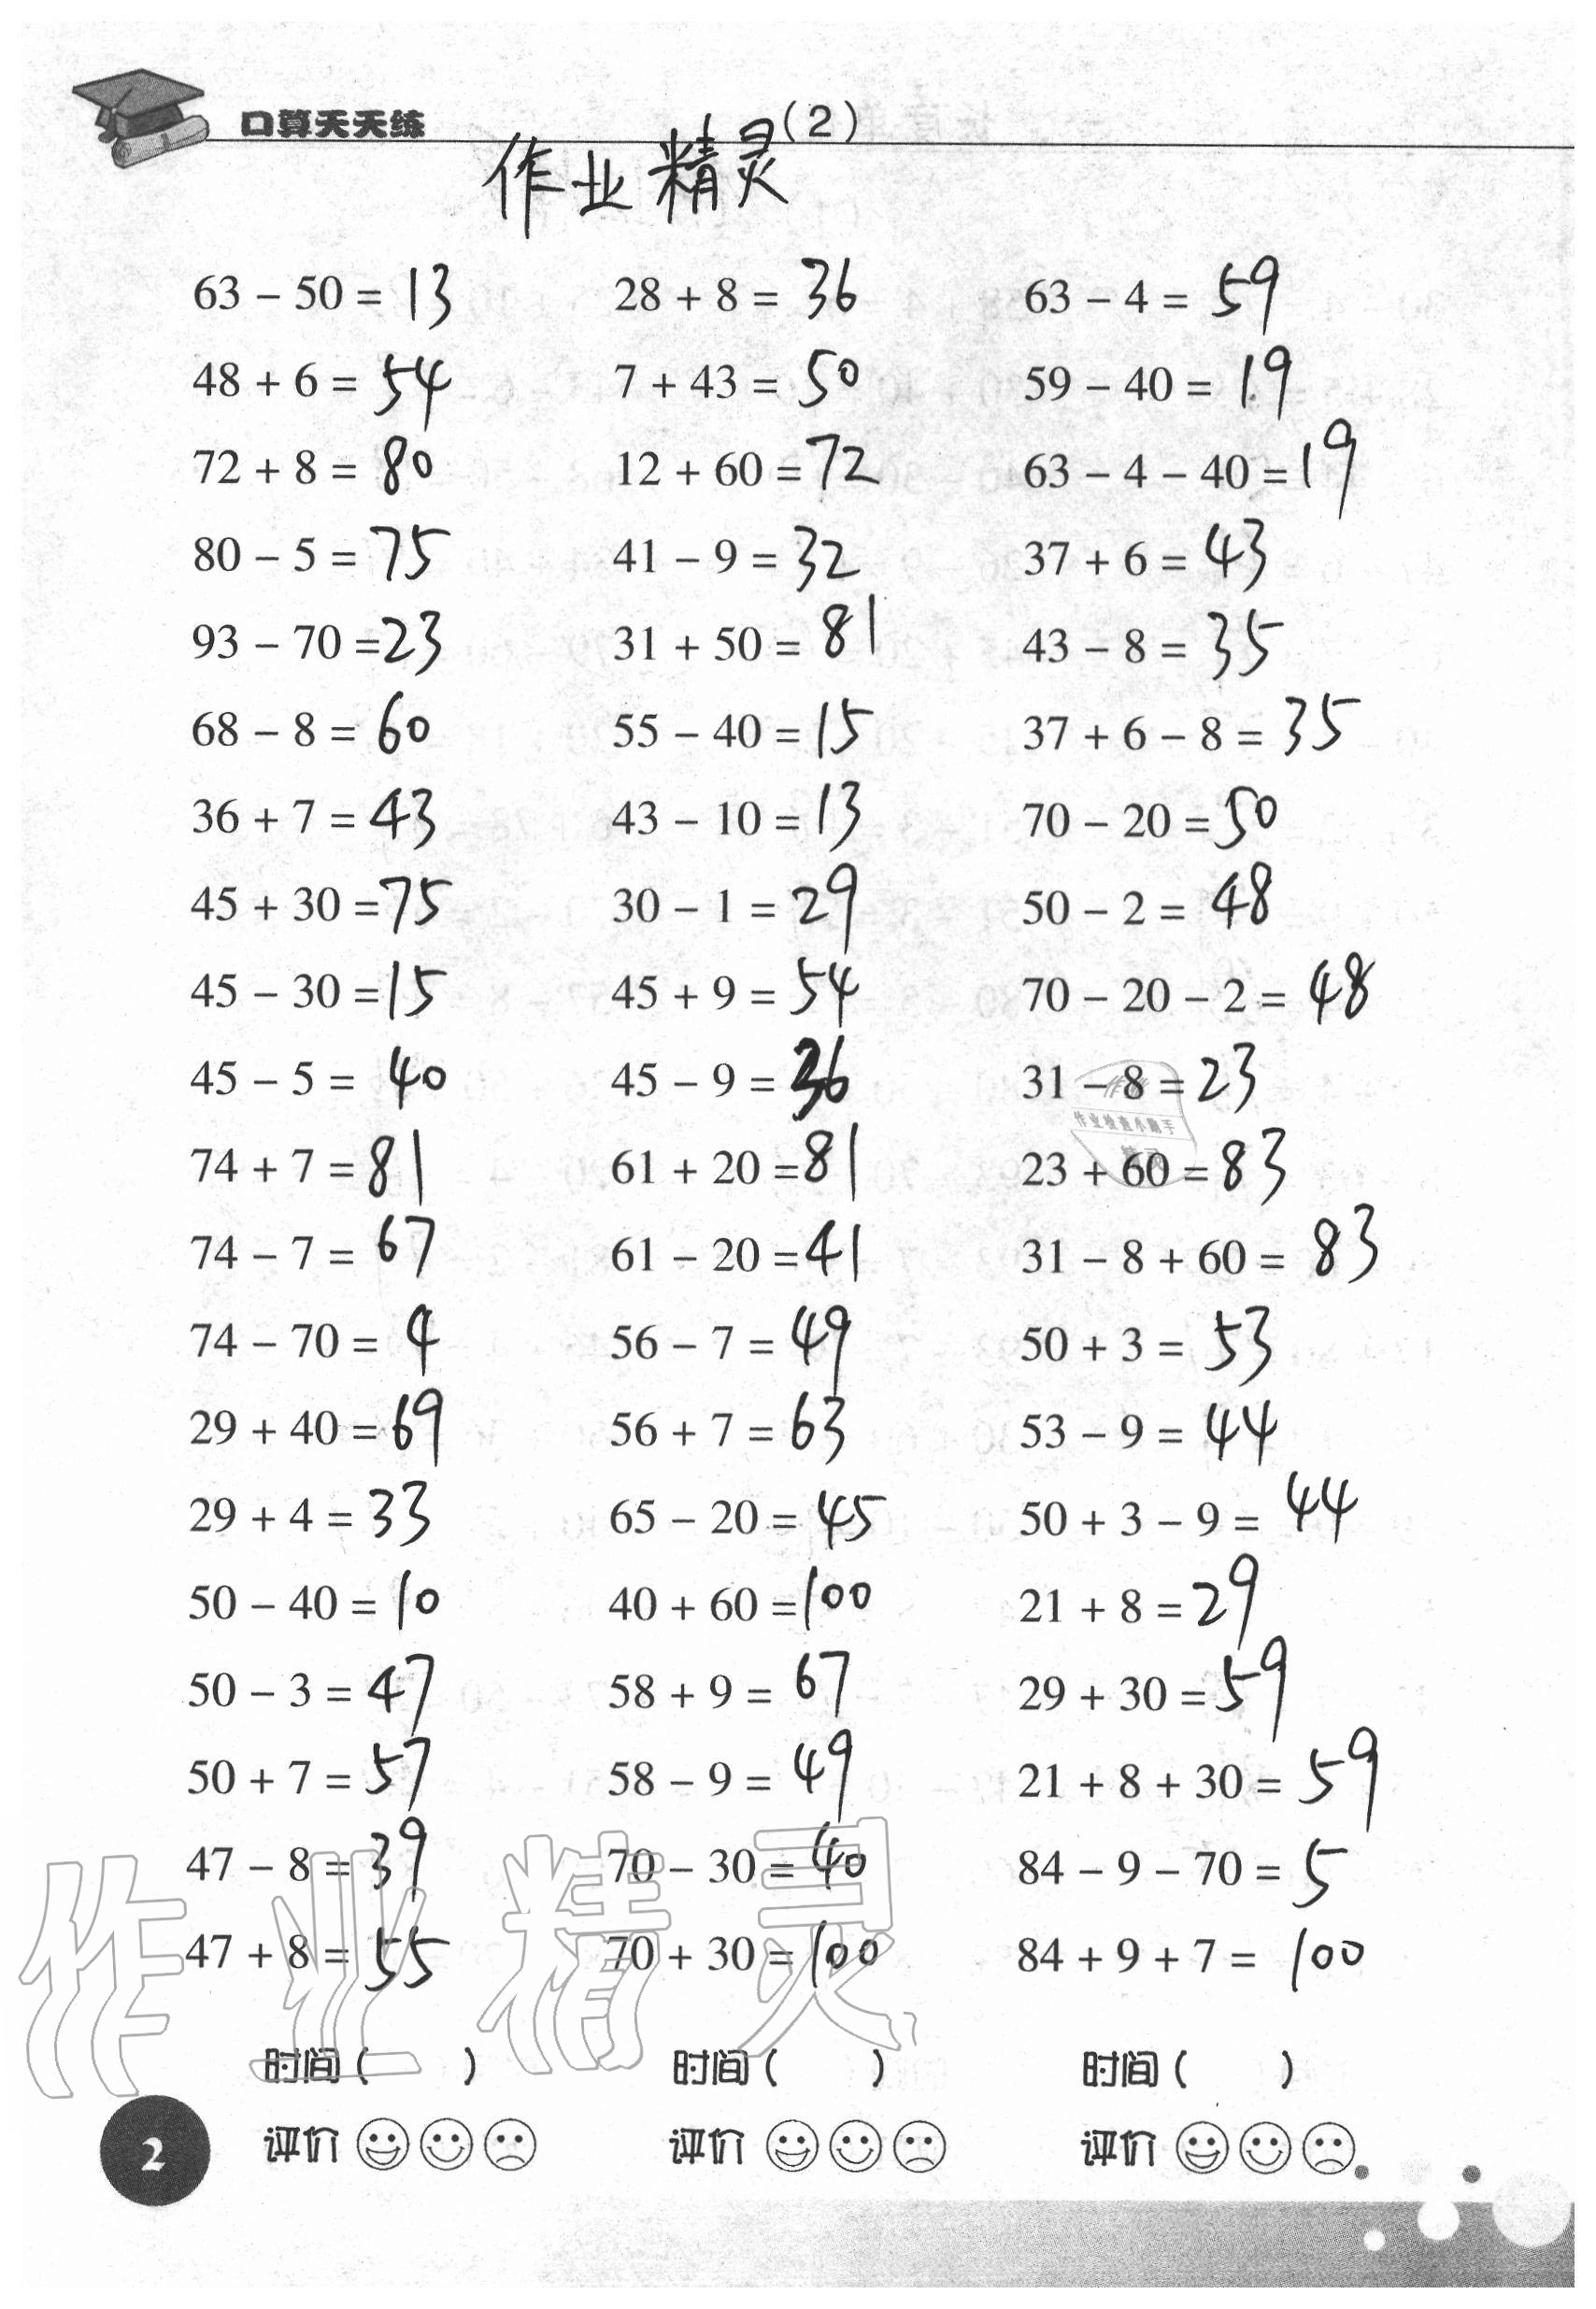 口算天天练
(2)
作业精灵
63 − 50 = 13 28 + 8 = 36 63 − 4 = 59
48 + 6 = 54 7 + 43 = 50 59 − 40 = 19
72 + 8 = 80 12 + 60 = 72 63 − 4 − 40 = 19
80 − 5 = 75 41 − 9 = 32 37 + 6 = 43
93 − 70 = 23 31 + 50 = 81 43 − 8 = 35
68 − 8 = 60 55 − 40 = 15 37 + 6 − 8 = 35
36 + 7 = 43 43 − 10 = 13 70 − 20 = 50
45 + 30 = 75 30 − 1 = 29 50 − 2 = 48
45 − 30 = 15 45 + 9 = 54 70 − 20 − 2 = 48
45 − 5 = 40 45 − 9 = 36 31 − 8 = 23
作业检查小助手
74 + 7 = 81 61 + 20 = 81 23 + 60 = 83
74 − 7 = 67 61 − 20 = 41 31 − 8 + 60 = 83
74 − 70 = 4 56 − 7 = 49 50 + 3 = 53
29 + 40 = 69 56 + 7 = 63 53 − 9 = 44
29 + 4 = 33 65 − 20 = 45 50 + 3 − 9 = 44
50 − 40 = 10 40 + 60 = 100 21 + 8 = 29
50 − 3 = 47 58 + 9 = 67 29 + 30 = 59
50 + 7 = 57 58 − 9 = 49 21 + 8 + 30 = 59
47 − 8 = 39 70 − 30 = 40 84 − 9 − 70 = 5
47 + 8 = 55 70 + 30 = 100 84 + 9 + 7 = 100
作业精灵
时间 ( ) 时间 ( ) 时间 ( )
评价 评价 评价
2